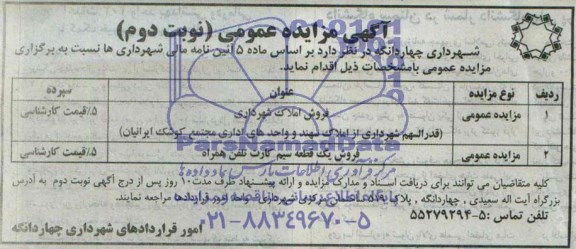 آگهی مزایده عمومی (نوبت دوم)
شهرداری چهاردانگه در نظر دارد بر اساس ماده ۵ آئین نامه مالی شهرداری ها نسبت به برگزاری
مزایده عمومی بامشخصات ذیل اقدام نماید.
ردیف نوع مزایده عنوان سپرده
۱ مزایده عمومی فروش املاک شهرداری ۵٪قیمت کارشناسی
(قدرالسهم شهرداری از املاک سهند و واحد های اداری مجتمع کوشک ایرانیان)
۲ مزایده عمومی فروش یک قطعه سیم کارت تلفن همراه ۵٪قیمت کارشناسی
ParsNamadData
مرکز فرآوری اطلاعات پارس نماد داده ها
کلیه متقاضیان می توانند برای دریافت اسناد و مدارک مزایده و ارائه پیشنهاد ظرف مدت ۱۰ روز پس از درج آگهی نوبت دوم به آدرس
بزرگراه آیت اله سعیدی ، چهاردانگه ، پلاک شهرداری امور قراردادها مراجعه نمایند.
تلفن تماس :۵-۵۵۲۷۹۲۹۴
۰۲۱-۸۸۳۴۹۶۷۰-۵
امور قراردادهای شهرداری چهاردانگه